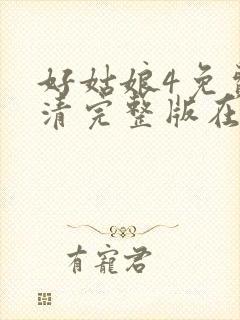 好姑娘4免费
清完整版在
有宠君